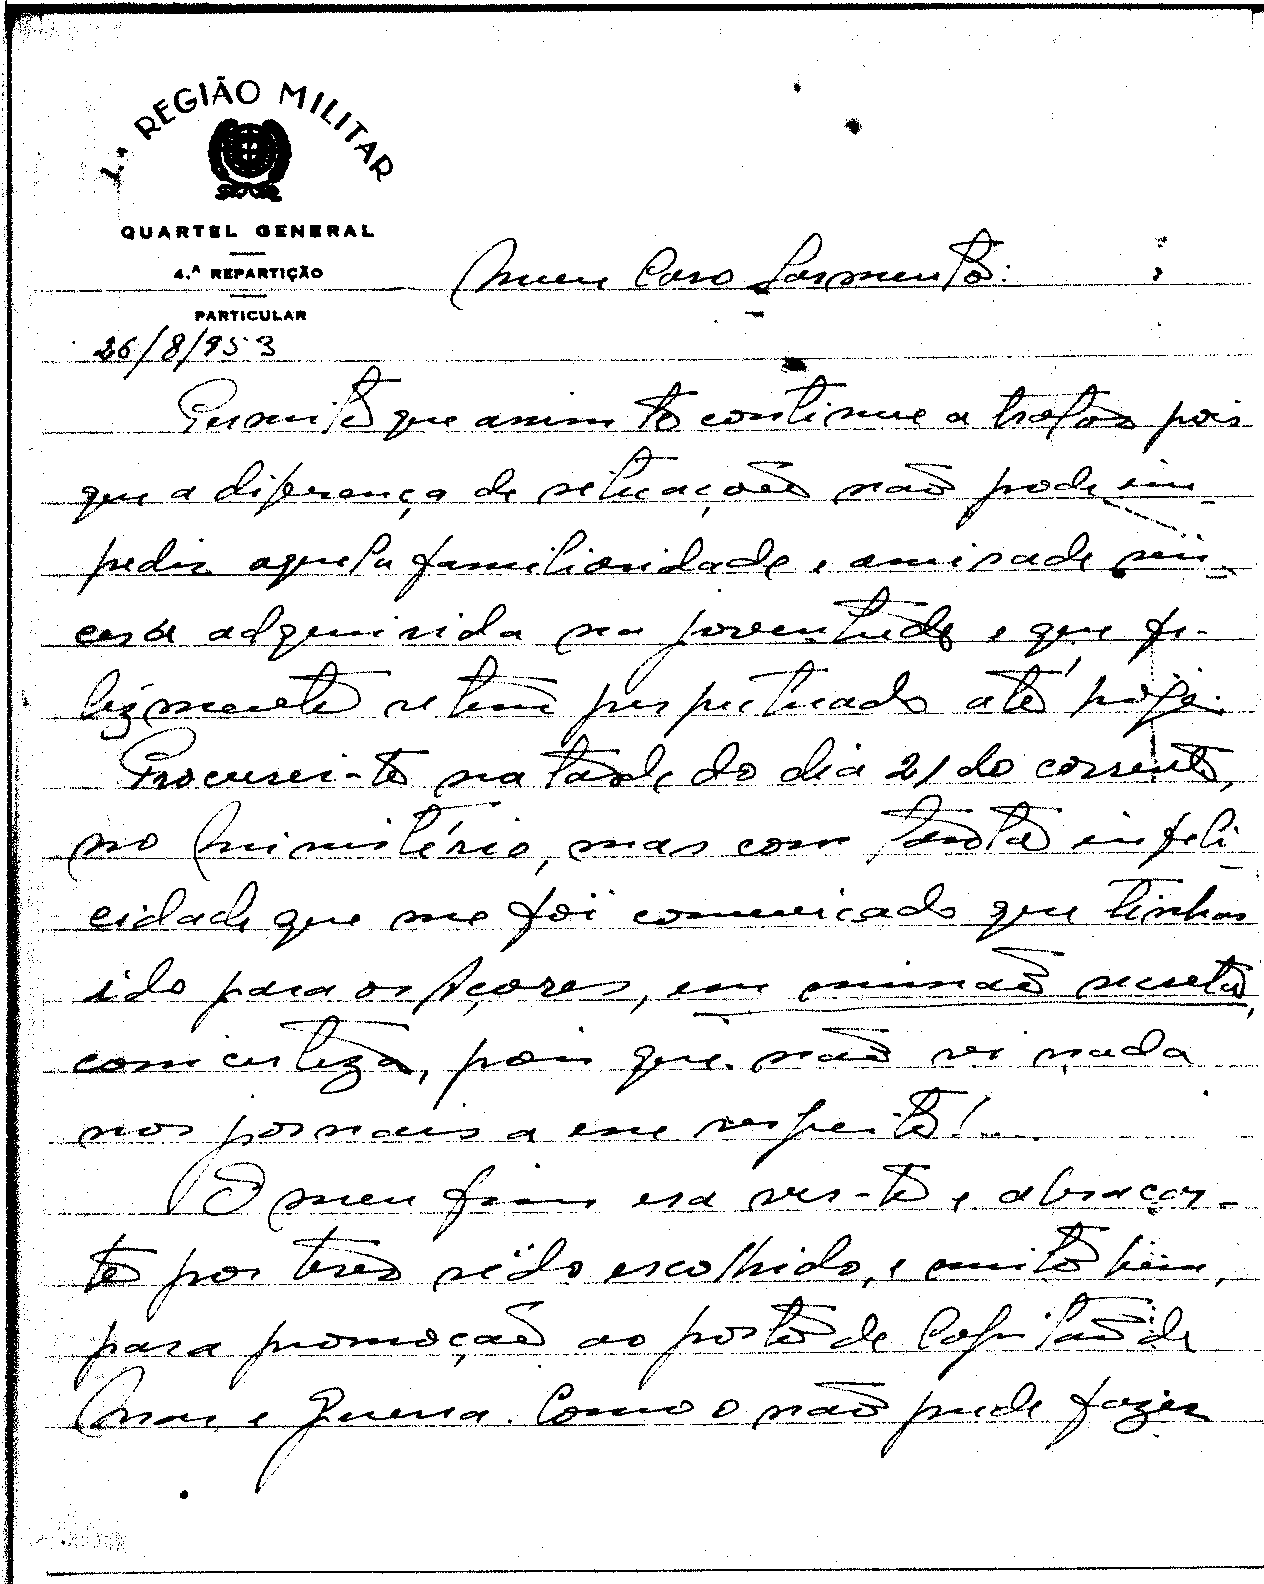 1.ª REGIÃO MILITAR
QUARTEL GENERAL
4.ª REPARTIÇÃO
PARTICULAR
26/8/953
Meu Caro Sarmento:
Permite que assim te continue a tratar pois
que a diferença de situações não pode im-
pedir aquela familiaridade e amisade sin-
cera adquirida na juventude e que fe-
lizmente se tem perpetuado até hoje.
Procurei-te na tarde do dia 21 do corrente,
no Ministério, mas com tanta infeli-
cidade que me foi comunicado que tinhas
ido para os Açores, em missão secreta,
com certeza, pois que não vi nada
nos jornais a esse respeito!...
O meu fim era ver-te e abraçar-
te por teres sido escolhido, e muito bem,
para promoção ao posto de Capitão de
Mar e Guerra. Como o não pude fazer